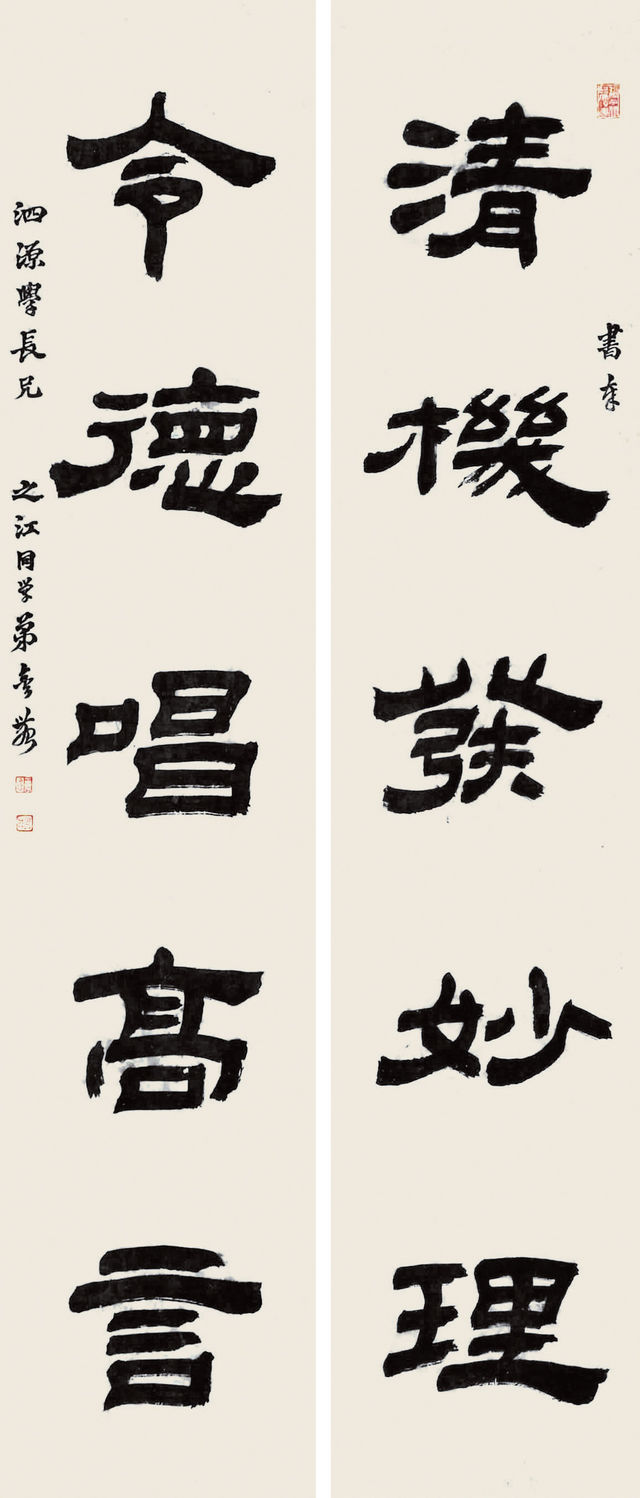 清機發妙理
書奉
令德唱高言
泗源學長兄
之江同学弟